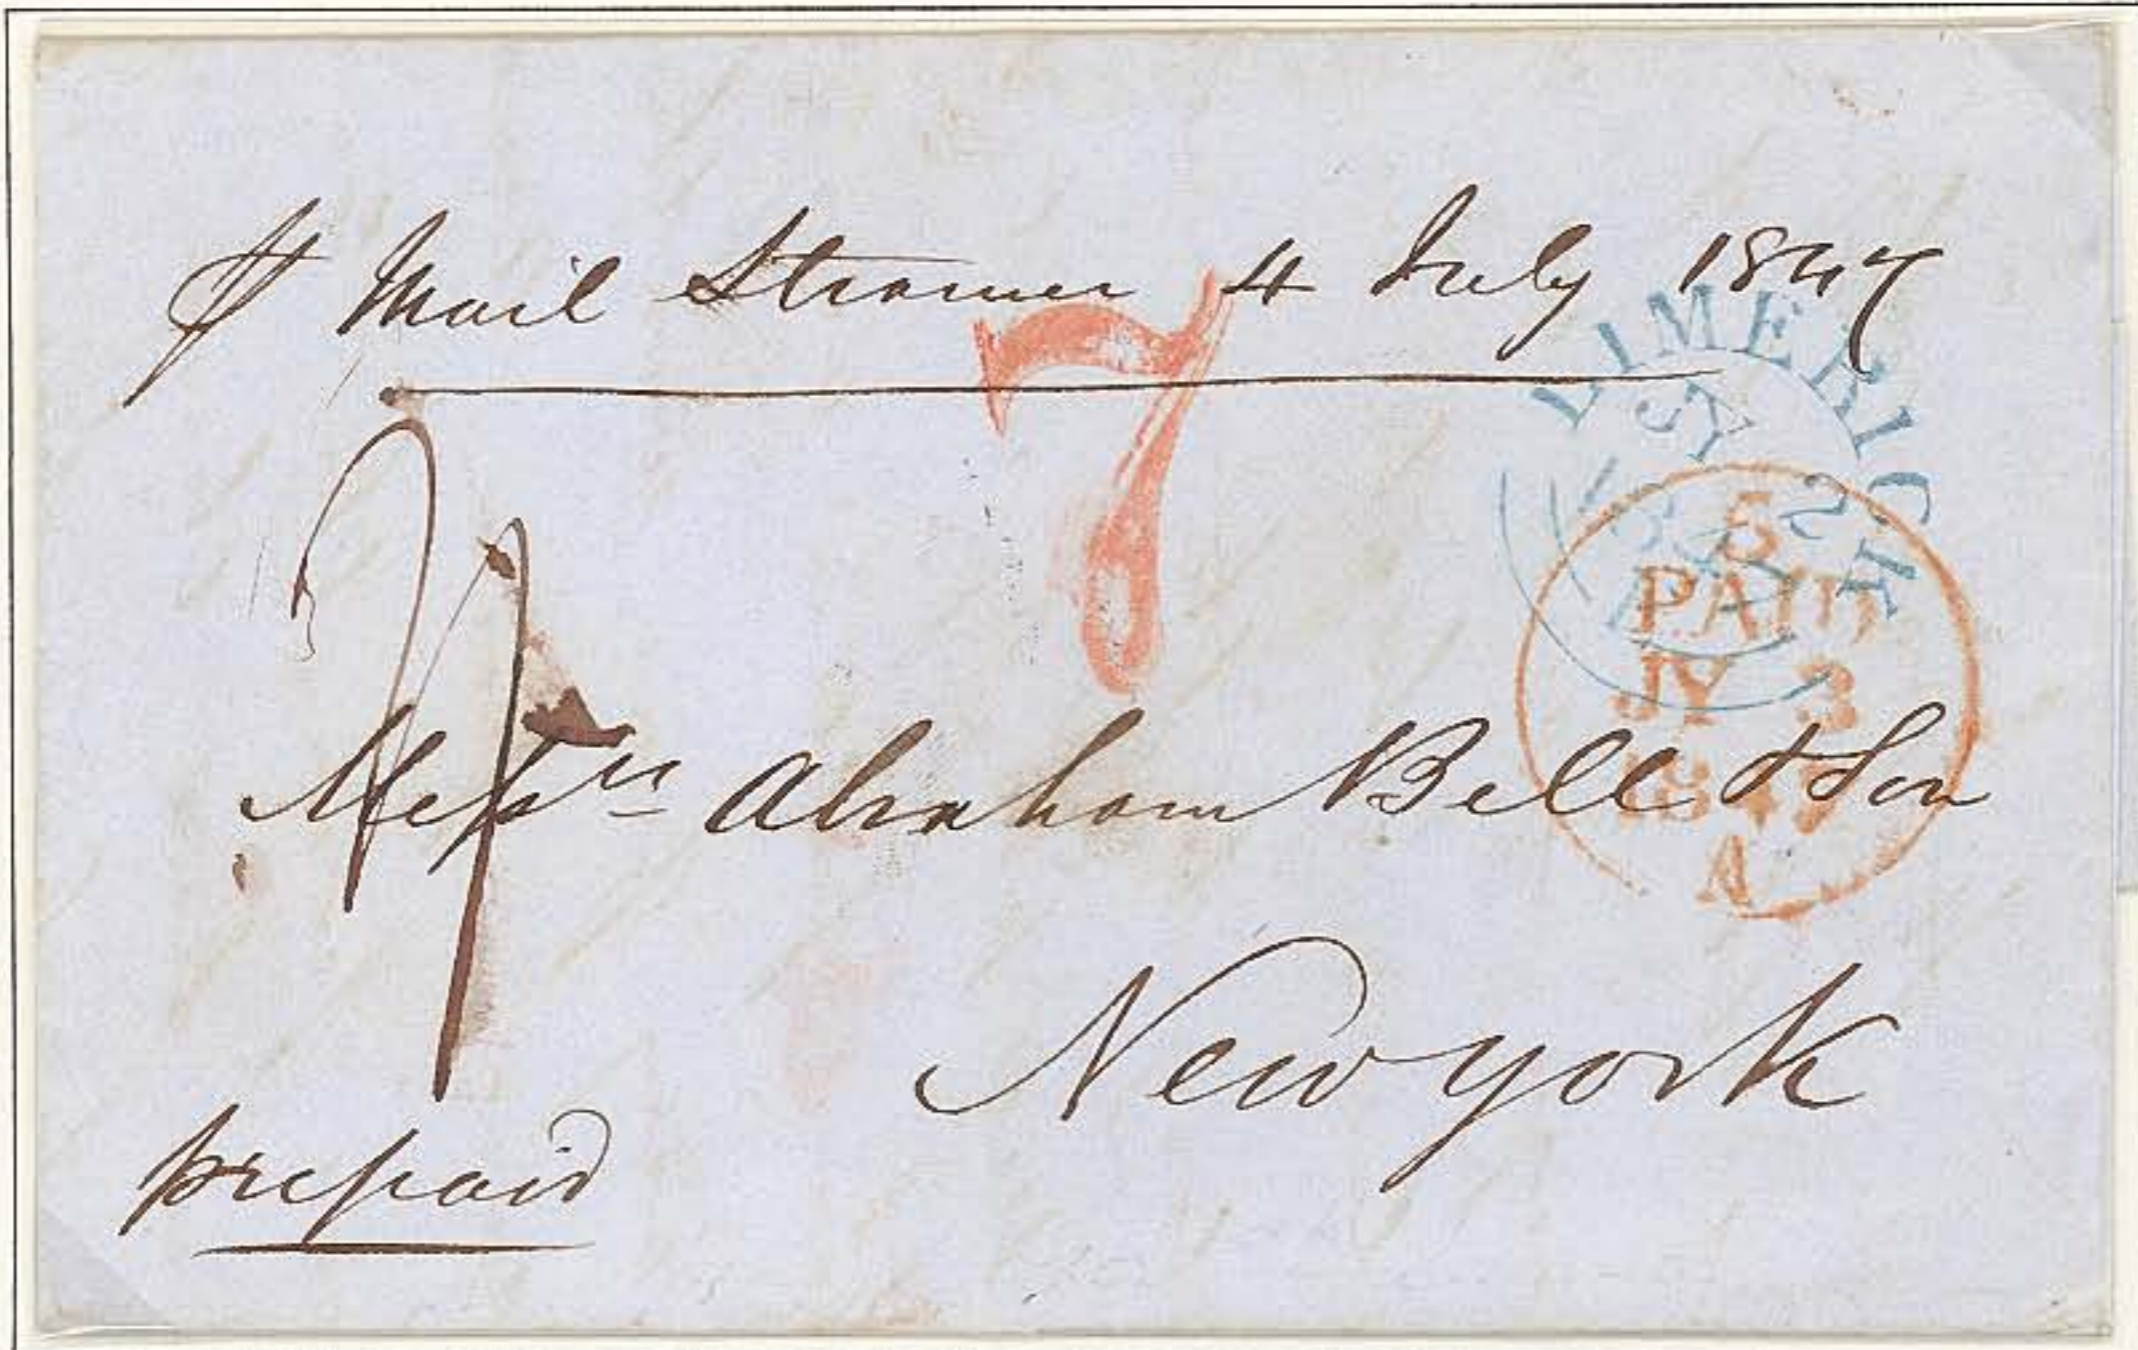 ⅌ Mail Steamer 4 July 1847
7
LIMERICK
JY 2
5
PAID
JY 3
1847
N
Messrs Abraham Bell & Son
New York
prepaid